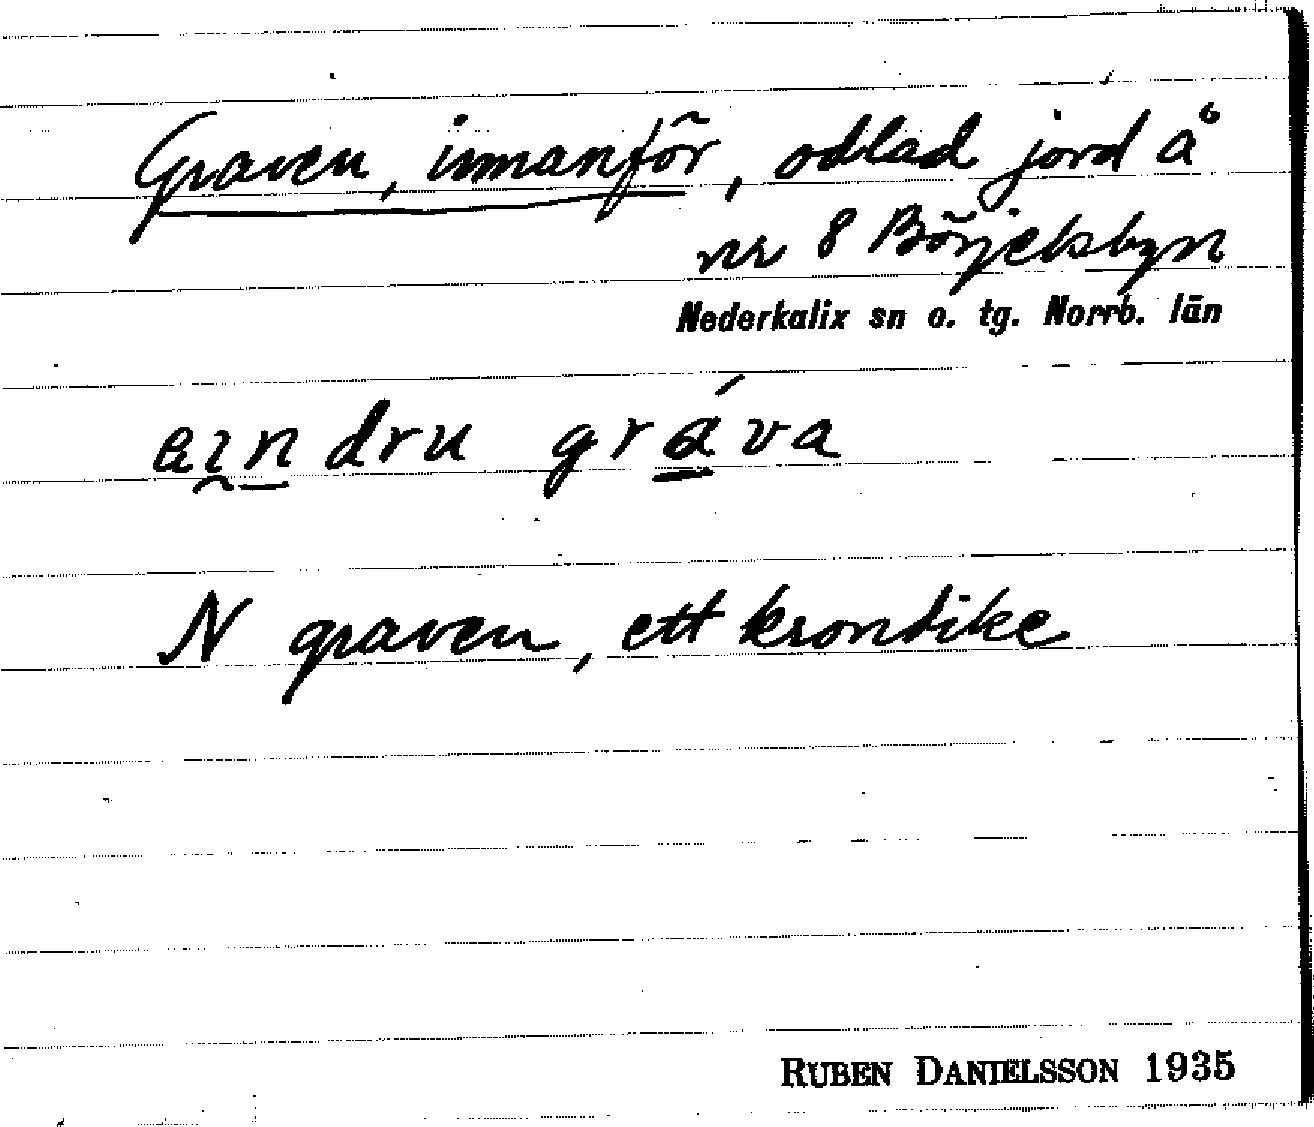 Graven, innanför, odlad jord å
nr 8 Börjelsbyn
Nederkalix sn o. tg. Norrb. län
aındru gráva
N graven, ett krondike
RUBEN DANIELSSON 1935